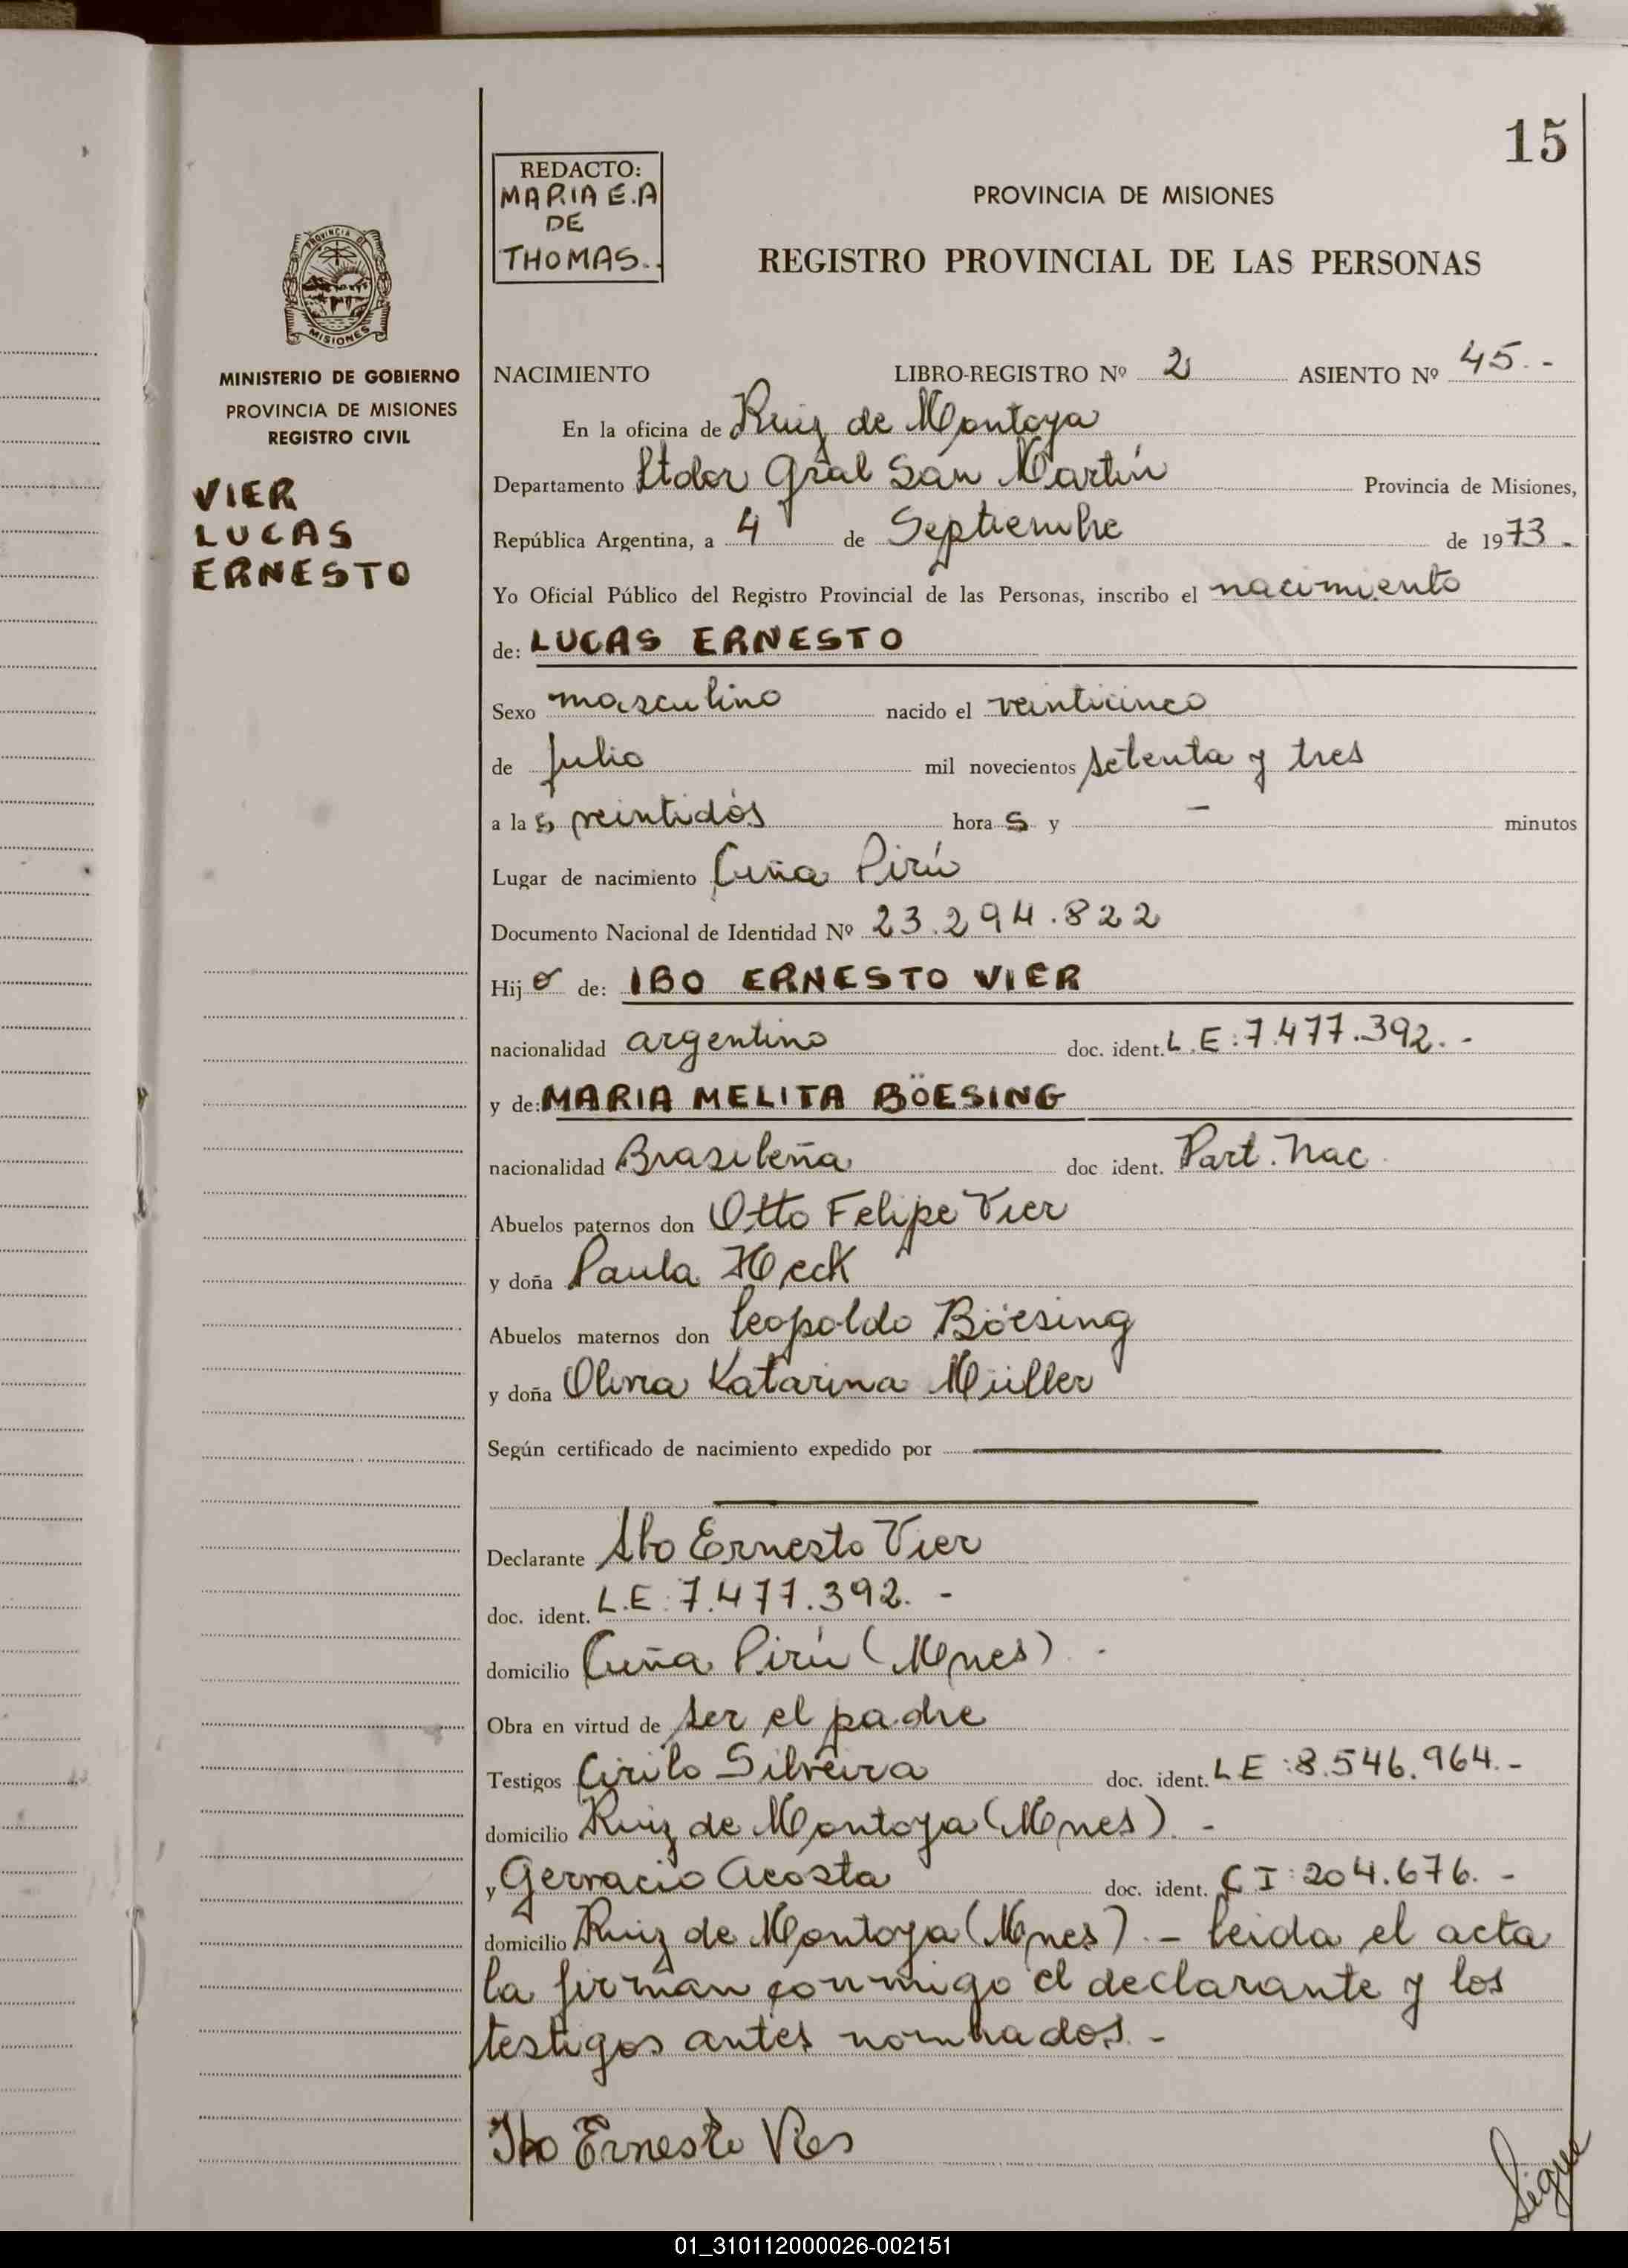 15
REDACTO:
MARIA E.A
DE
THOMAS.
PROVINCIA DE MISIONES
REGISTRO PROVINCIAL DE LAS PERSONAS
PROVINCIA DE
MISIONES
MINISTERIO DE GOBIERNO
PROVINCIA DE MISIONES
REGISTRO CIVIL
VIER
LUCAS
ERNESTO
NACIMIENTO LIBRO-REGISTRO Nº 2 ASIENTO Nº 45.-
En la oficina de Ruiz de Montoya
Departamento Ltdor Gral San Martín Provincia de Misiones,
República Argentina, a 4 de Septiembre de 1973.-
Yo Oficial Público del Registro Provincial de las Personas, inscribo el nacimiento
de: LUCAS ERNESTO
Sexo masculino nacido el veinticinco
de Julio mil novecientos setenta y tres
a las veintidós horas y - minutos
Lugar de nacimiento Cuña Pirú
Documento Nacional de Identidad Nº 23.294.822
Hijo de: IBO ERNESTO VIER
nacionalidad argentino doc. ident. L.E:7.477.392.-
y de: MARIA MELITA BÖESING
nacionalidad Brasileña doc. ident. Part. Nac.
Abuelos paternos don Otto Felipe Vier
y doña Paula Heck
Abuelos maternos don Leopoldo Böesing
y doña Olivia Katarina Müller
Según certificado de nacimiento expedido por
Declarante Ibo Ernesto Vier
doc. ident. L.E:7.477.392.-
domicilio Cuña Pirú (Mnes).-
Obra en virtud de ser el padre
Testigos Cirilo Silveira doc. ident. LE:8.546.964.-
domicilio Ruiz de Montoya (Mnes).-
y Gervacio Acosta doc. ident. C I:204.676.-
domicilio Ruiz de Montoya (Mnes).- leida el acta
la firman conmigo el declarante y los
testigos antes nombrados.-
Ibo Ernesto Vier
Sigue
01_310112000026-002151